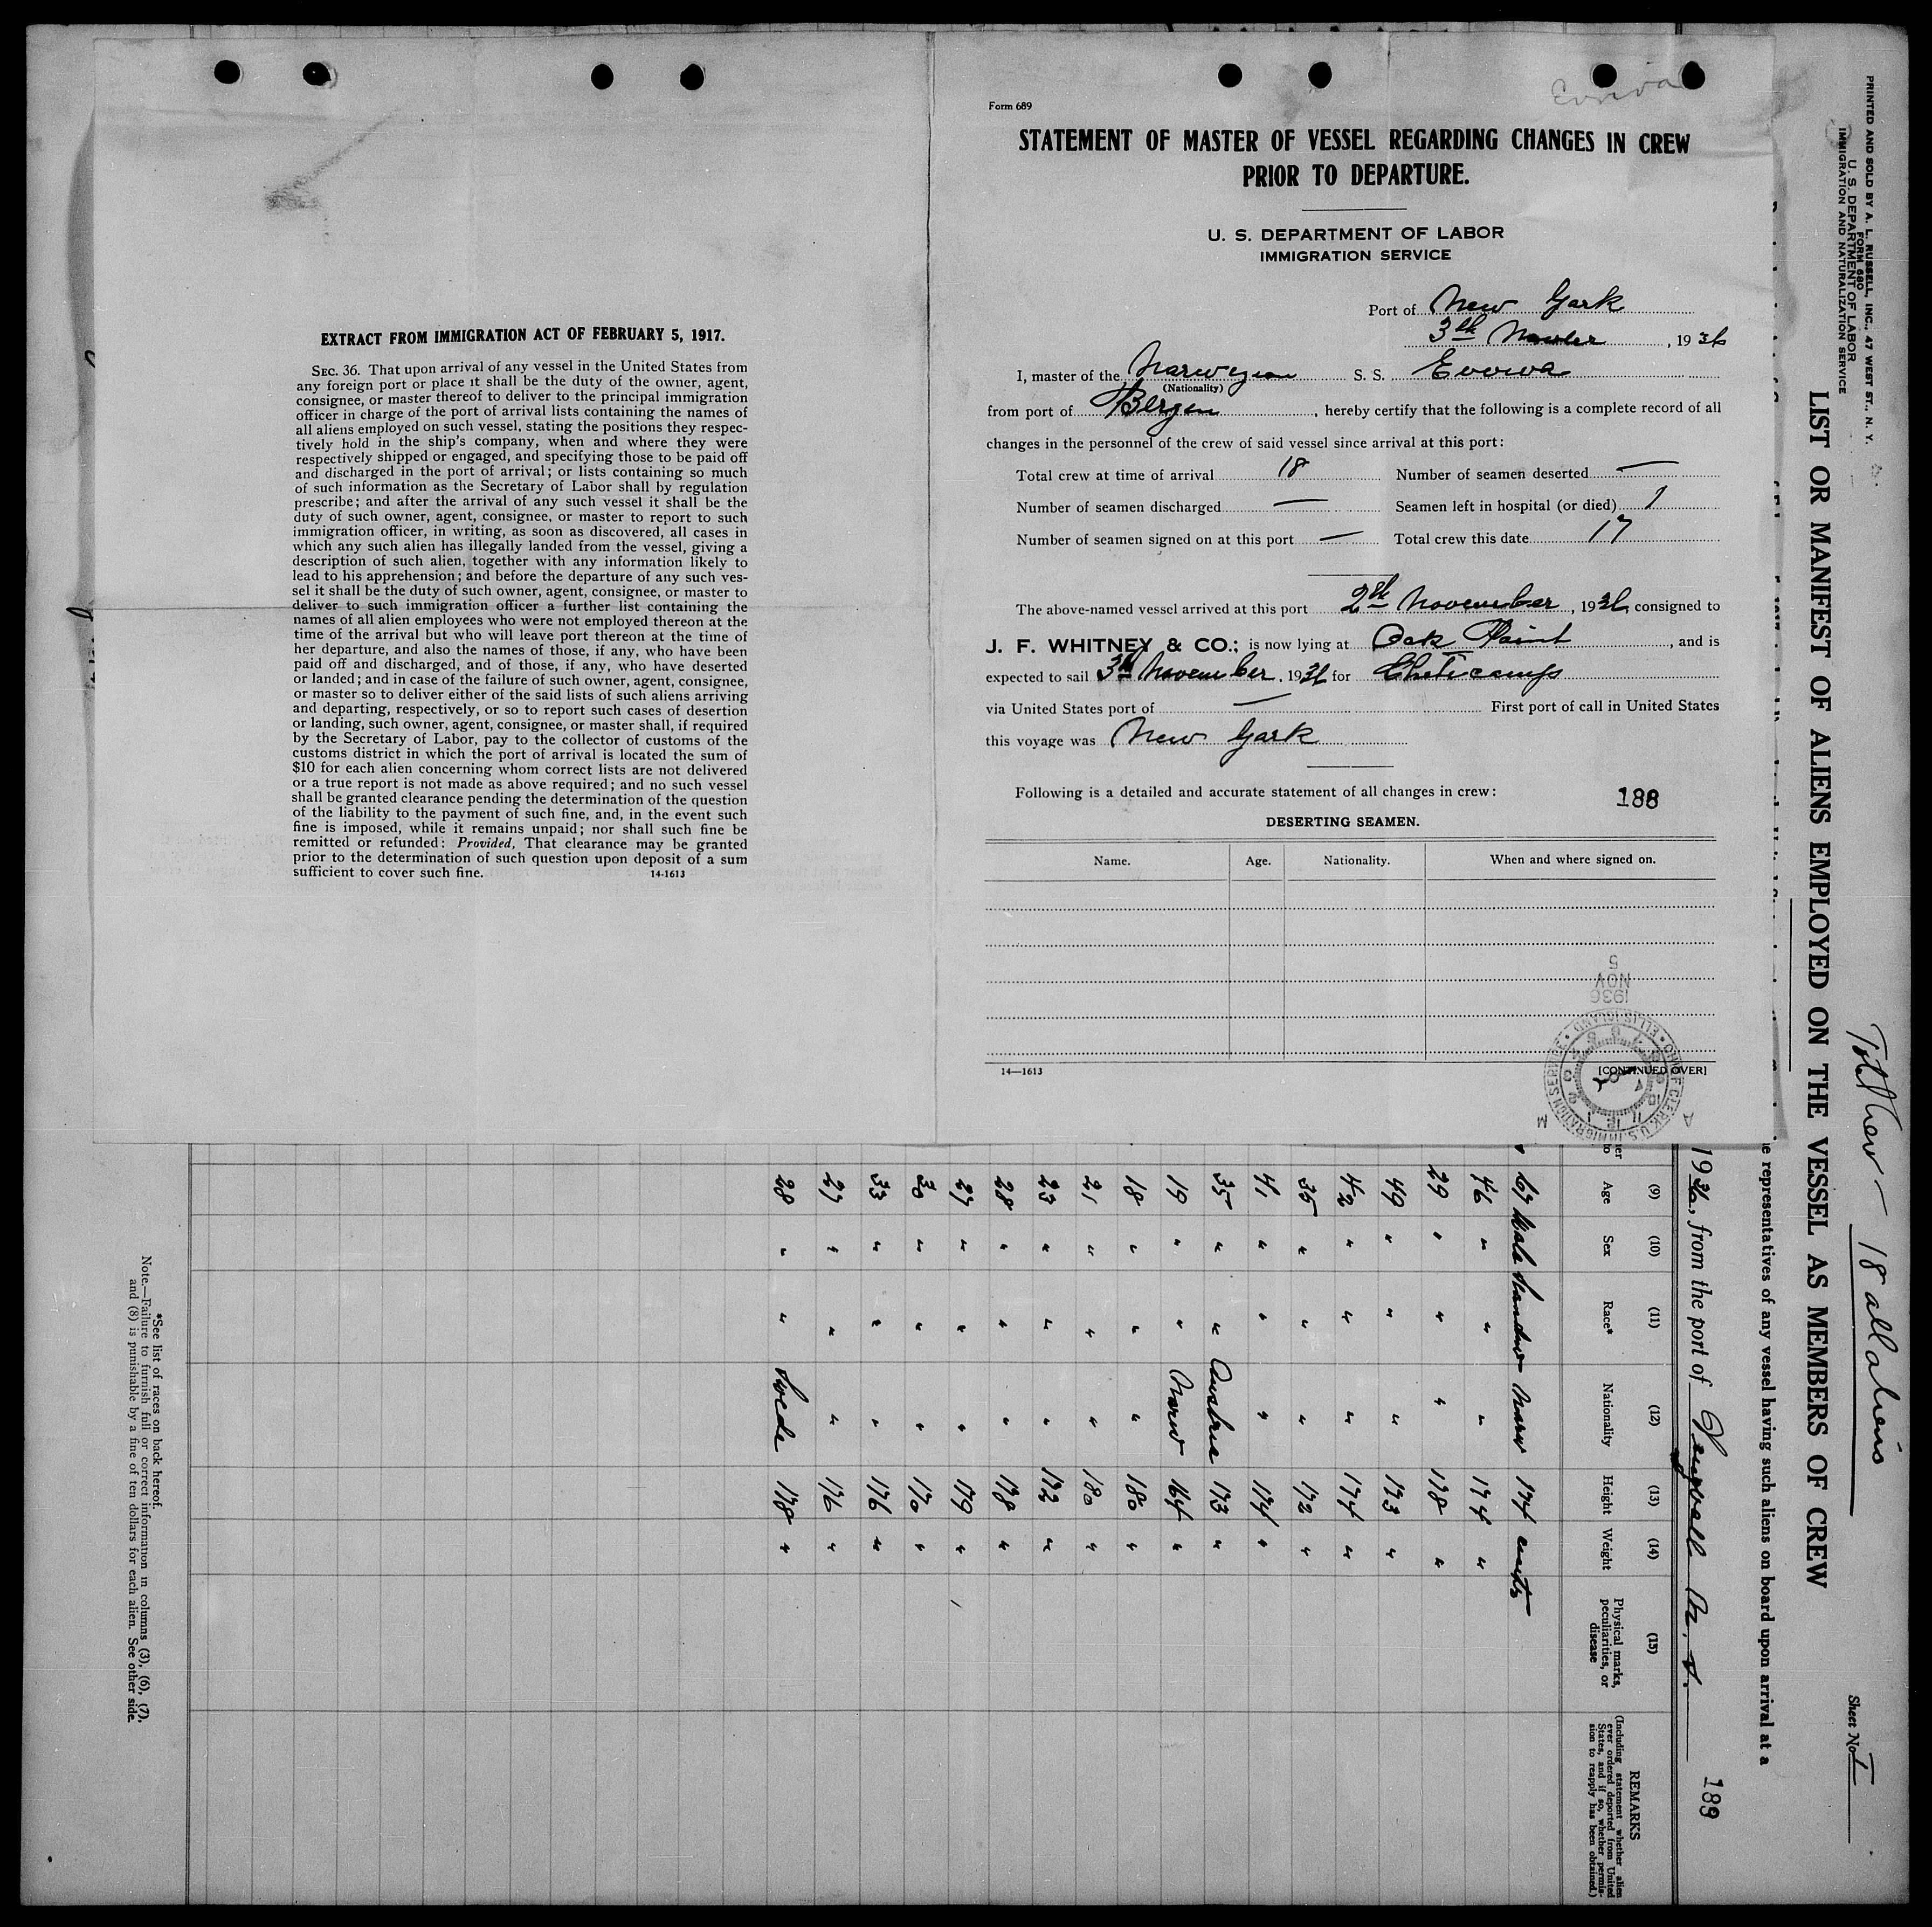 EXTRACT FROM IMMIGRATION ACT OF FEBRUARY 5, 1917.
SEC. 36. That upon arrival of any vessel in the United States from
any foreign port or place it shall be the duty of the owner, agent,
consignee, or master thereof to deliver to the principal immigration
officer in charge of the port of arrival lists containing the names of
all aliens employed on such vessel, stating the positions they respec-
tively hold in the ship's company, when and where they were
respectively shipped or engaged, and specifying those to be paid off
and discharged in the port of arrival; or lists containing so much
of such information as the Secretary of Labor shall by regulation
prescribe; and after the arrival of any such vessel it shall be the
duty of such owner, agent, consignee, or master to report to such
immigration officer, in writing, as soon as discovered, all cases in
which any such alien has illegally landed from the vessel, giving a
description of such alien, together with any information likely to
lead to his apprehension; and before the departure of any such ves-
sel it shall be the duty of such owner, agent, consignee, or master to
deliver to such immigration officer a further list containing the
names of all alien employees who were not employed thereon at the
time of the arrival but who will leave port thereon at the time of
her departure, and also the names of those, if any, who have been
paid off and discharged, and of those, if any, who have deserted
or landed; and in case of the failure of such owner, agent, consignee,
or master so to deliver either of the said lists of such aliens arriving
and departing, respectively, or so to report such cases of desertion
or landing, such owner, agent, consignee, or master shall, if required
by the Secretary of Labor, pay to the collector of customs of the
customs district in which the port of arrival is located the sum of
$10 for each alien concerning whom correct lists are not delivered
or a true report is not made as above required; and no such vessel
shall be granted clearance pending the determination of the question
of the liability to the payment of such fine, and, in the event such
fine is imposed, while it remains unpaid; nor shall such fine be
remitted or refunded: Provided, That clearance may be granted
prior to the determination of such question upon deposit of a sum
sufficient to cover such fine. 14-1613
Form 689
STATEMENT OF MASTER OF VESSEL REGARDING CHANGES IN CREW
PRIOR TO DEPARTURE.
U. S. DEPARTMENT OF LABOR
IMMIGRATION SERVICE
Port of New York
3th , 1936
I, master of the Norwegian S. S.
(Nationality)
from port of Bergen, hereby certify that the following is a complete record of all
changes in the personnel of the crew of said vessel since arrival at this port:
Total crew at time of arrival 18 Number of seamen deserted —
Number of seamen discharged — Seamen left in hospital (or died) 1
Number of seamen signed on at this port — Total crew this date 17
The above-named vessel arrived at this port 2th November, 1936, consigned to
J. F. WHITNEY & CO.; is now lying at Oak Point, and is
expected to sail 3th November, 1936 for Cheticamp
via United States port of — First port of call in United States
this voyage was New York
Following is a detailed and accurate statement of all changes in crew: 188
DESERTING SEAMEN.
Name. Age. Nationality. When and where signed on.
14—1613 [CONTINUED OVER]
1936
NOV
5
CHIEF CLERK U.S. IMMIGRATION SERVICE ELLIS ISLAND
A M
PRINTED AND SOLD BY A. L. RUSSELL, INC., 47 WEST ST., N. Y.
FORM 680
U. S. DEPARTMENT OF LABOR
IMMIGRATION AND NATURALIZATION SERVICE
18 all aliens
Sheet No. 1
LIST OR MANIFEST OF ALIENS EMPLOYED ON THE VESSEL AS MEMBERS OF CREW
representatives of any vessel having such aliens on board upon arrival at a
1936, from the port of
189
(9) (10) (11) (12) (13) (14) (15)
Age Sex Race* Nationality Height Weight Physical marks, peculiarities, or disease
REMARKS
(Including statement whether alien
ever ordered deported from United
States, and if so, whether permis-
sion to reapply has been obtained.)
67 Male Norw 174
46 " " " 174 "
29 " " " 178 "
49 " " " 173 "
42 " " " 174 "
35 " " " 172 "
41 " " " 174 "
35 " " 173 "
19 " " Norw 164 "
18 " " " 180 "
21 " " " 180 "
23 " " " 172 "
28 " " " 178 "
27 " " " 179 "
30 " " " 170 "
33 " " " 176 "
27 " " " 176 "
28 " " Swede 178 "
*See list of races on back hereof.
Note.—Failure to furnish full or correct information in columns (3), (6), (7),
and (8) is punishable by a fine of ten dollars for each alien. See other side.